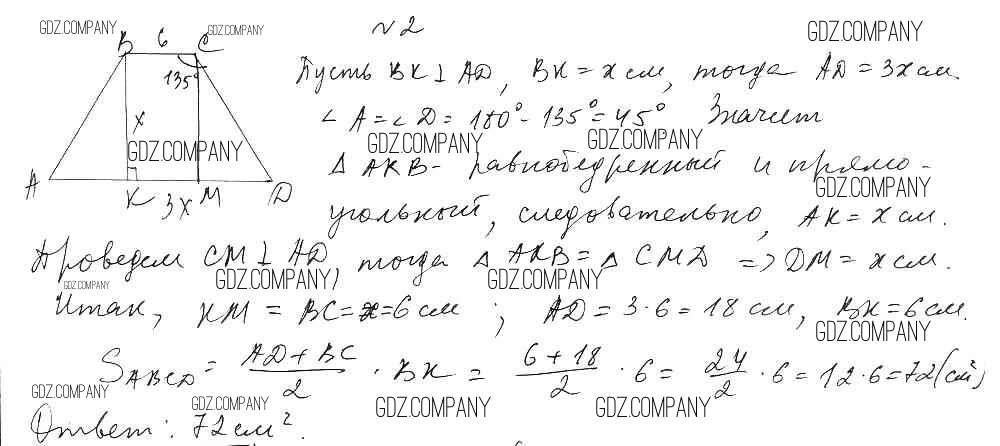 GDZ.COMPANY
GDZ.COMPANY
№2
GDZ.COMPANY
B 6 C
135°
Пусть BK ⊥ AD, BK = x см, тогда AD = 3x см.
x
∠A = ∠D = 180° - 135° = 45° Значит
GDZ.COMPANY
GDZ.COMPANY
GDZ.COMPANY
△AKB - равнобедренный и прямо-
GDZ.COMPANY
A K 3x M D
угольный, следовательно, AK = x см.
Проведем CM ⊥ AD, тогда △AKB = △CMD => DM = x см.
GDZ.COMPANY
GDZ.COMPANY
GDZ.COMPANY
Итак, KM = BC = x = 6 см ; AD = 3·6 = 18 см, BK = 6 см.
GDZ.COMPANY
S ABCD = AD + BC / 2 · BK = 6 + 18 / 2 · 6 = 24 / 2 · 6 = 12 · 6 = 72 (см²)
GDZ.COMPANY
GDZ.COMPANY
GDZ.COMPANY
GDZ.COMPANY
Ответ: 72 см².